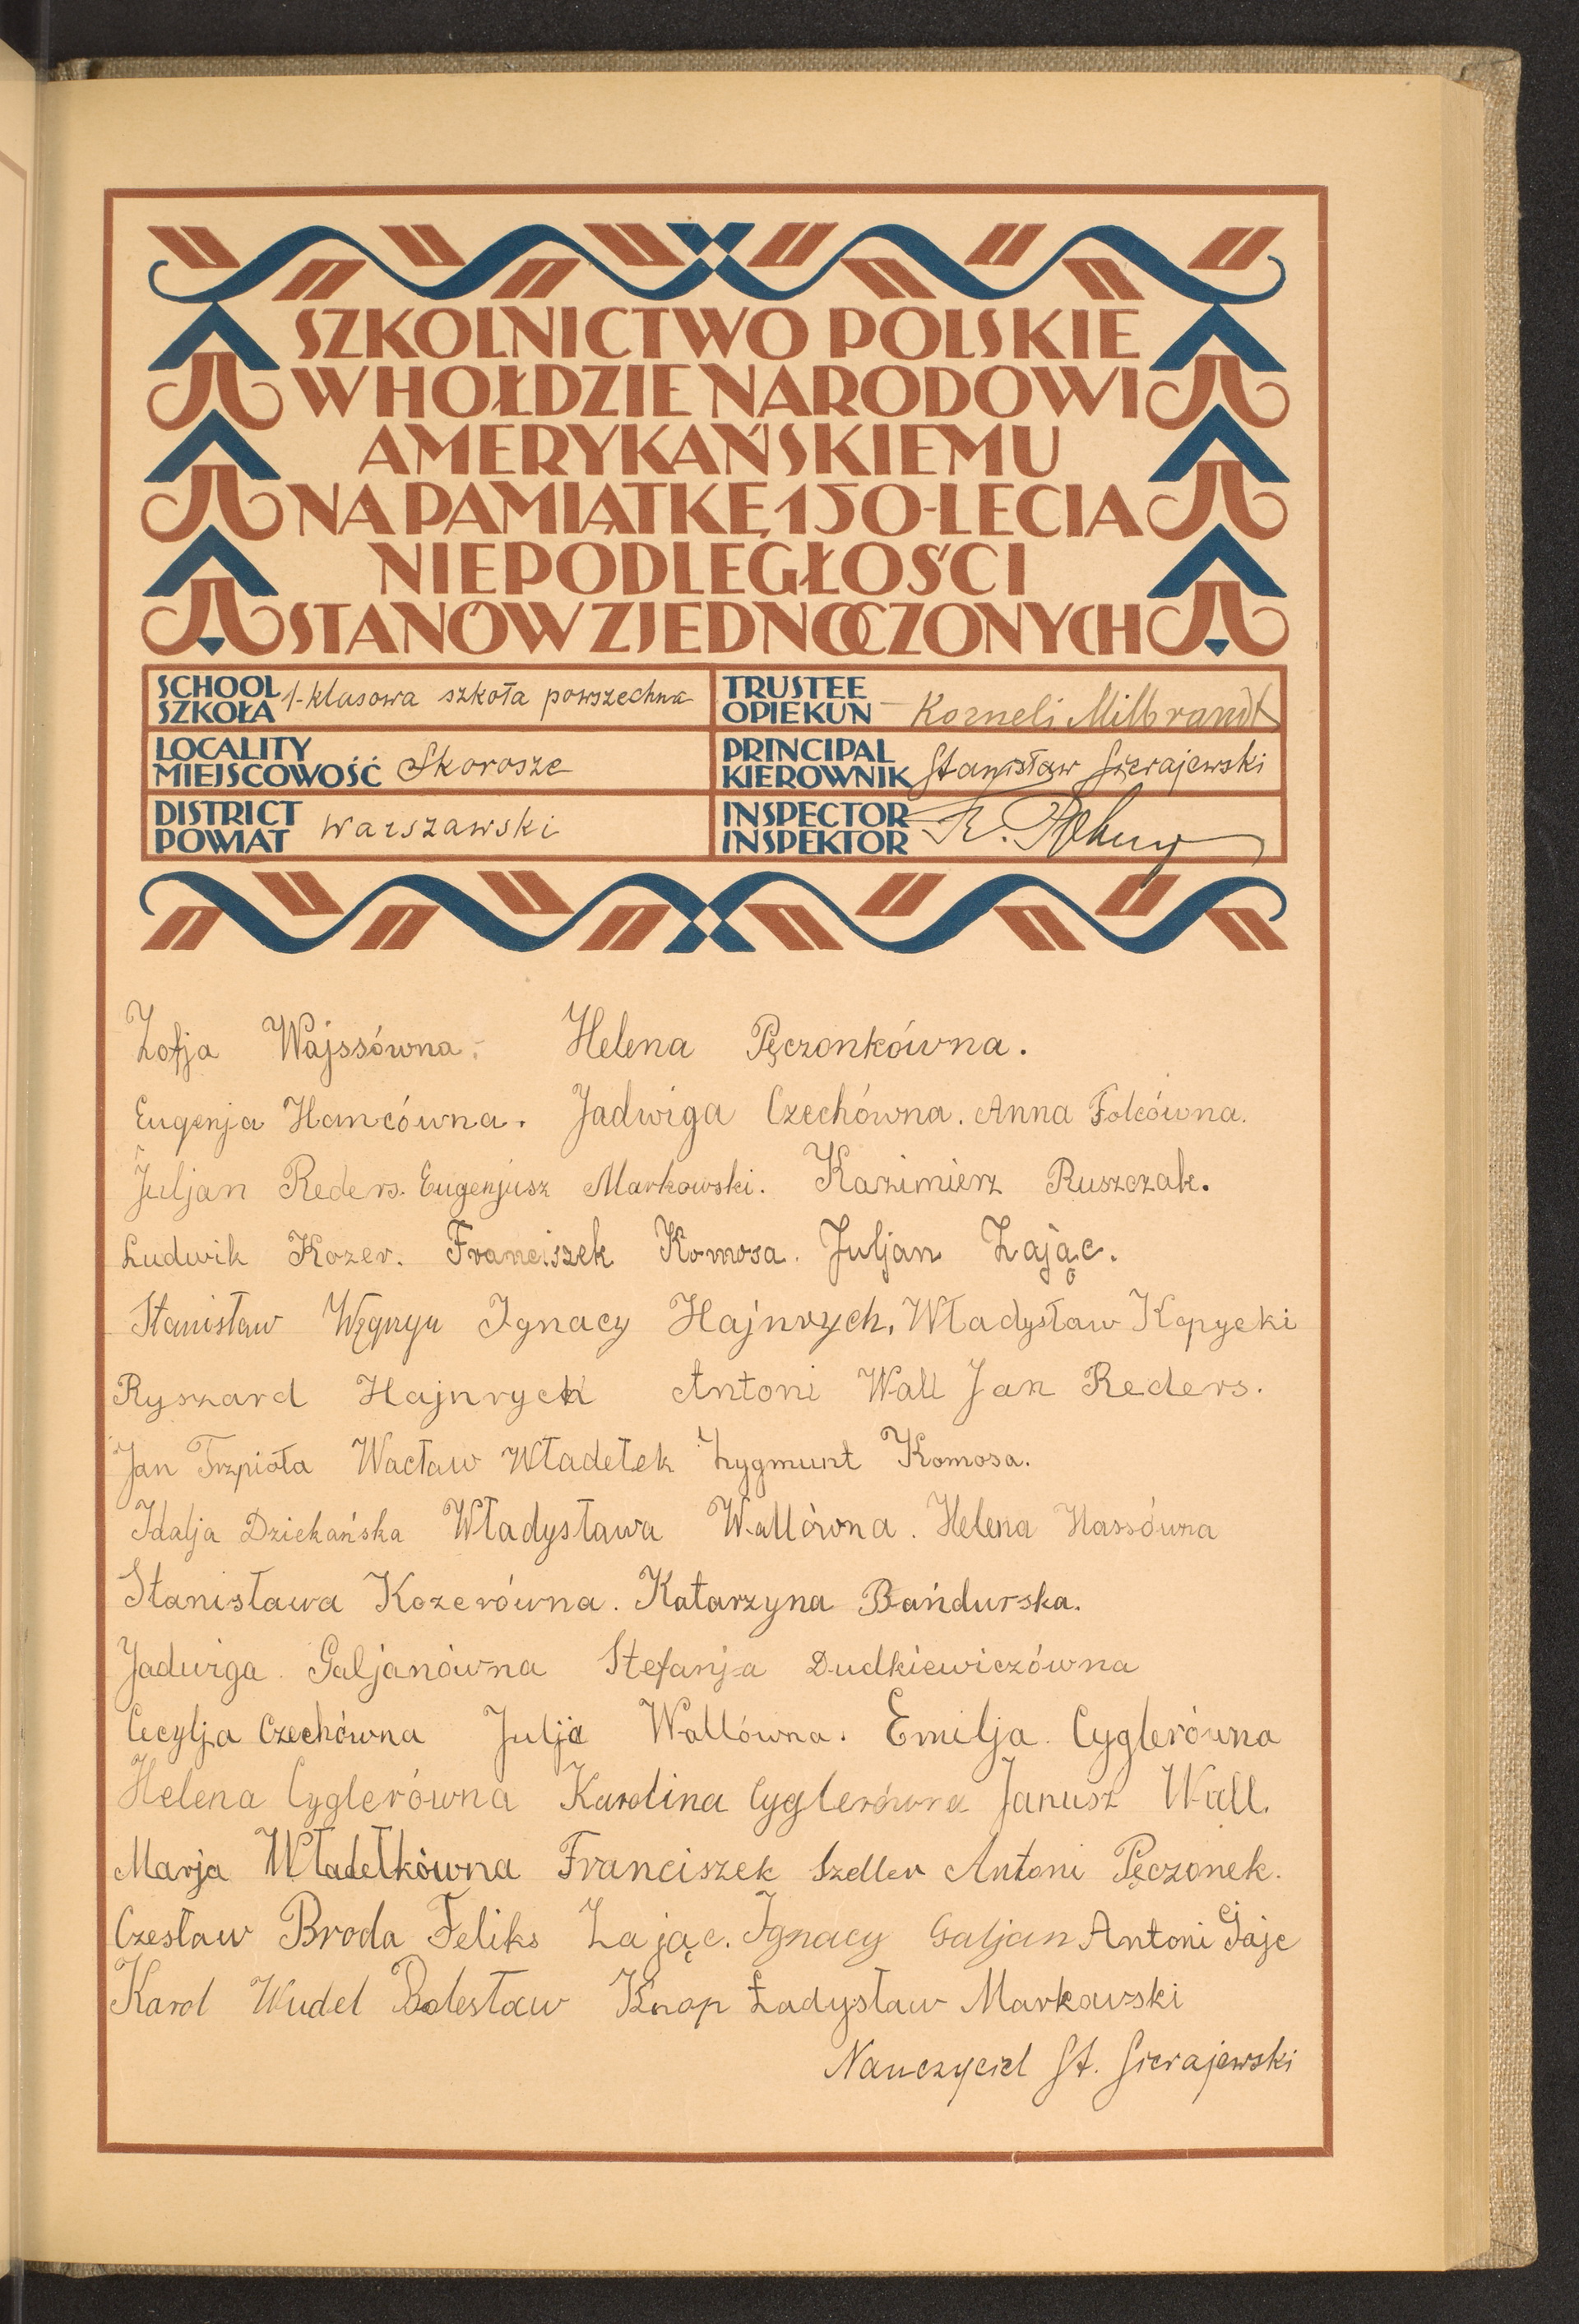 SZKOLNICTWO POLSKIE
W HOŁDZIE NARODOWI
AMERYKAŃSKIEMU
NA PAMIĄTKĘ 150-LECIA
NIEPODLEGŁOŚCI
STANÓW ZJEDNOCZONYCH
SCHOOL
SZKOŁA
1-klasowa szkoła powszechna
TRUSTEE
OPIEKUN
Korneli Milbrandt
LOCALITY
MIEJSCOWOŚĆ
Skorosze
PRINCIPAL
KIEROWNIK
Stanisław Sierajewski
DISTRICT
POWIAT
Warszawski
INSPECTOR
INSPEKTOR
Zofja Wajssówna. Helena Pęczonkówna.
Eugenja Hancówna. Jadwiga Czechówna. Anna Folcówna.
Juljan Reders. Eugenjusz Markowski. Kazimierz Ruszczak.
Ludwik Kozer. Franciszek Komosa. Juljan Zając.
Stanisław Węgryn Ignacy Hajnrych, Władysław Kopycki
Ryszard Hajnrych Antoni Wall Jan Reders.
Jan Trzpioła Wacław Władełek Zygmunt Komosa.
Idalja Dziekańska Władysława Wallówna. Helena Hassówna
Stanisława Kozerówna. Katarzyna Bańdurska.
Jadwiga Galjanówna Stefanja Dudkiewiczówna
Cecylja Czechówna Julja Wallówna. Emilja Cyglerówna
Helena Cyglerówna Karolina Cyglerówna Janusz Wall.
Marja Władełkówna Franciszek Szeller Antoni Pęczonek.
Czesław Broda Feliks Zając. Ignacy Galjan Antoni
Karol Wudel Bolesław Knap Ładysław Markowski
Nauczyciel St. Sierajewski